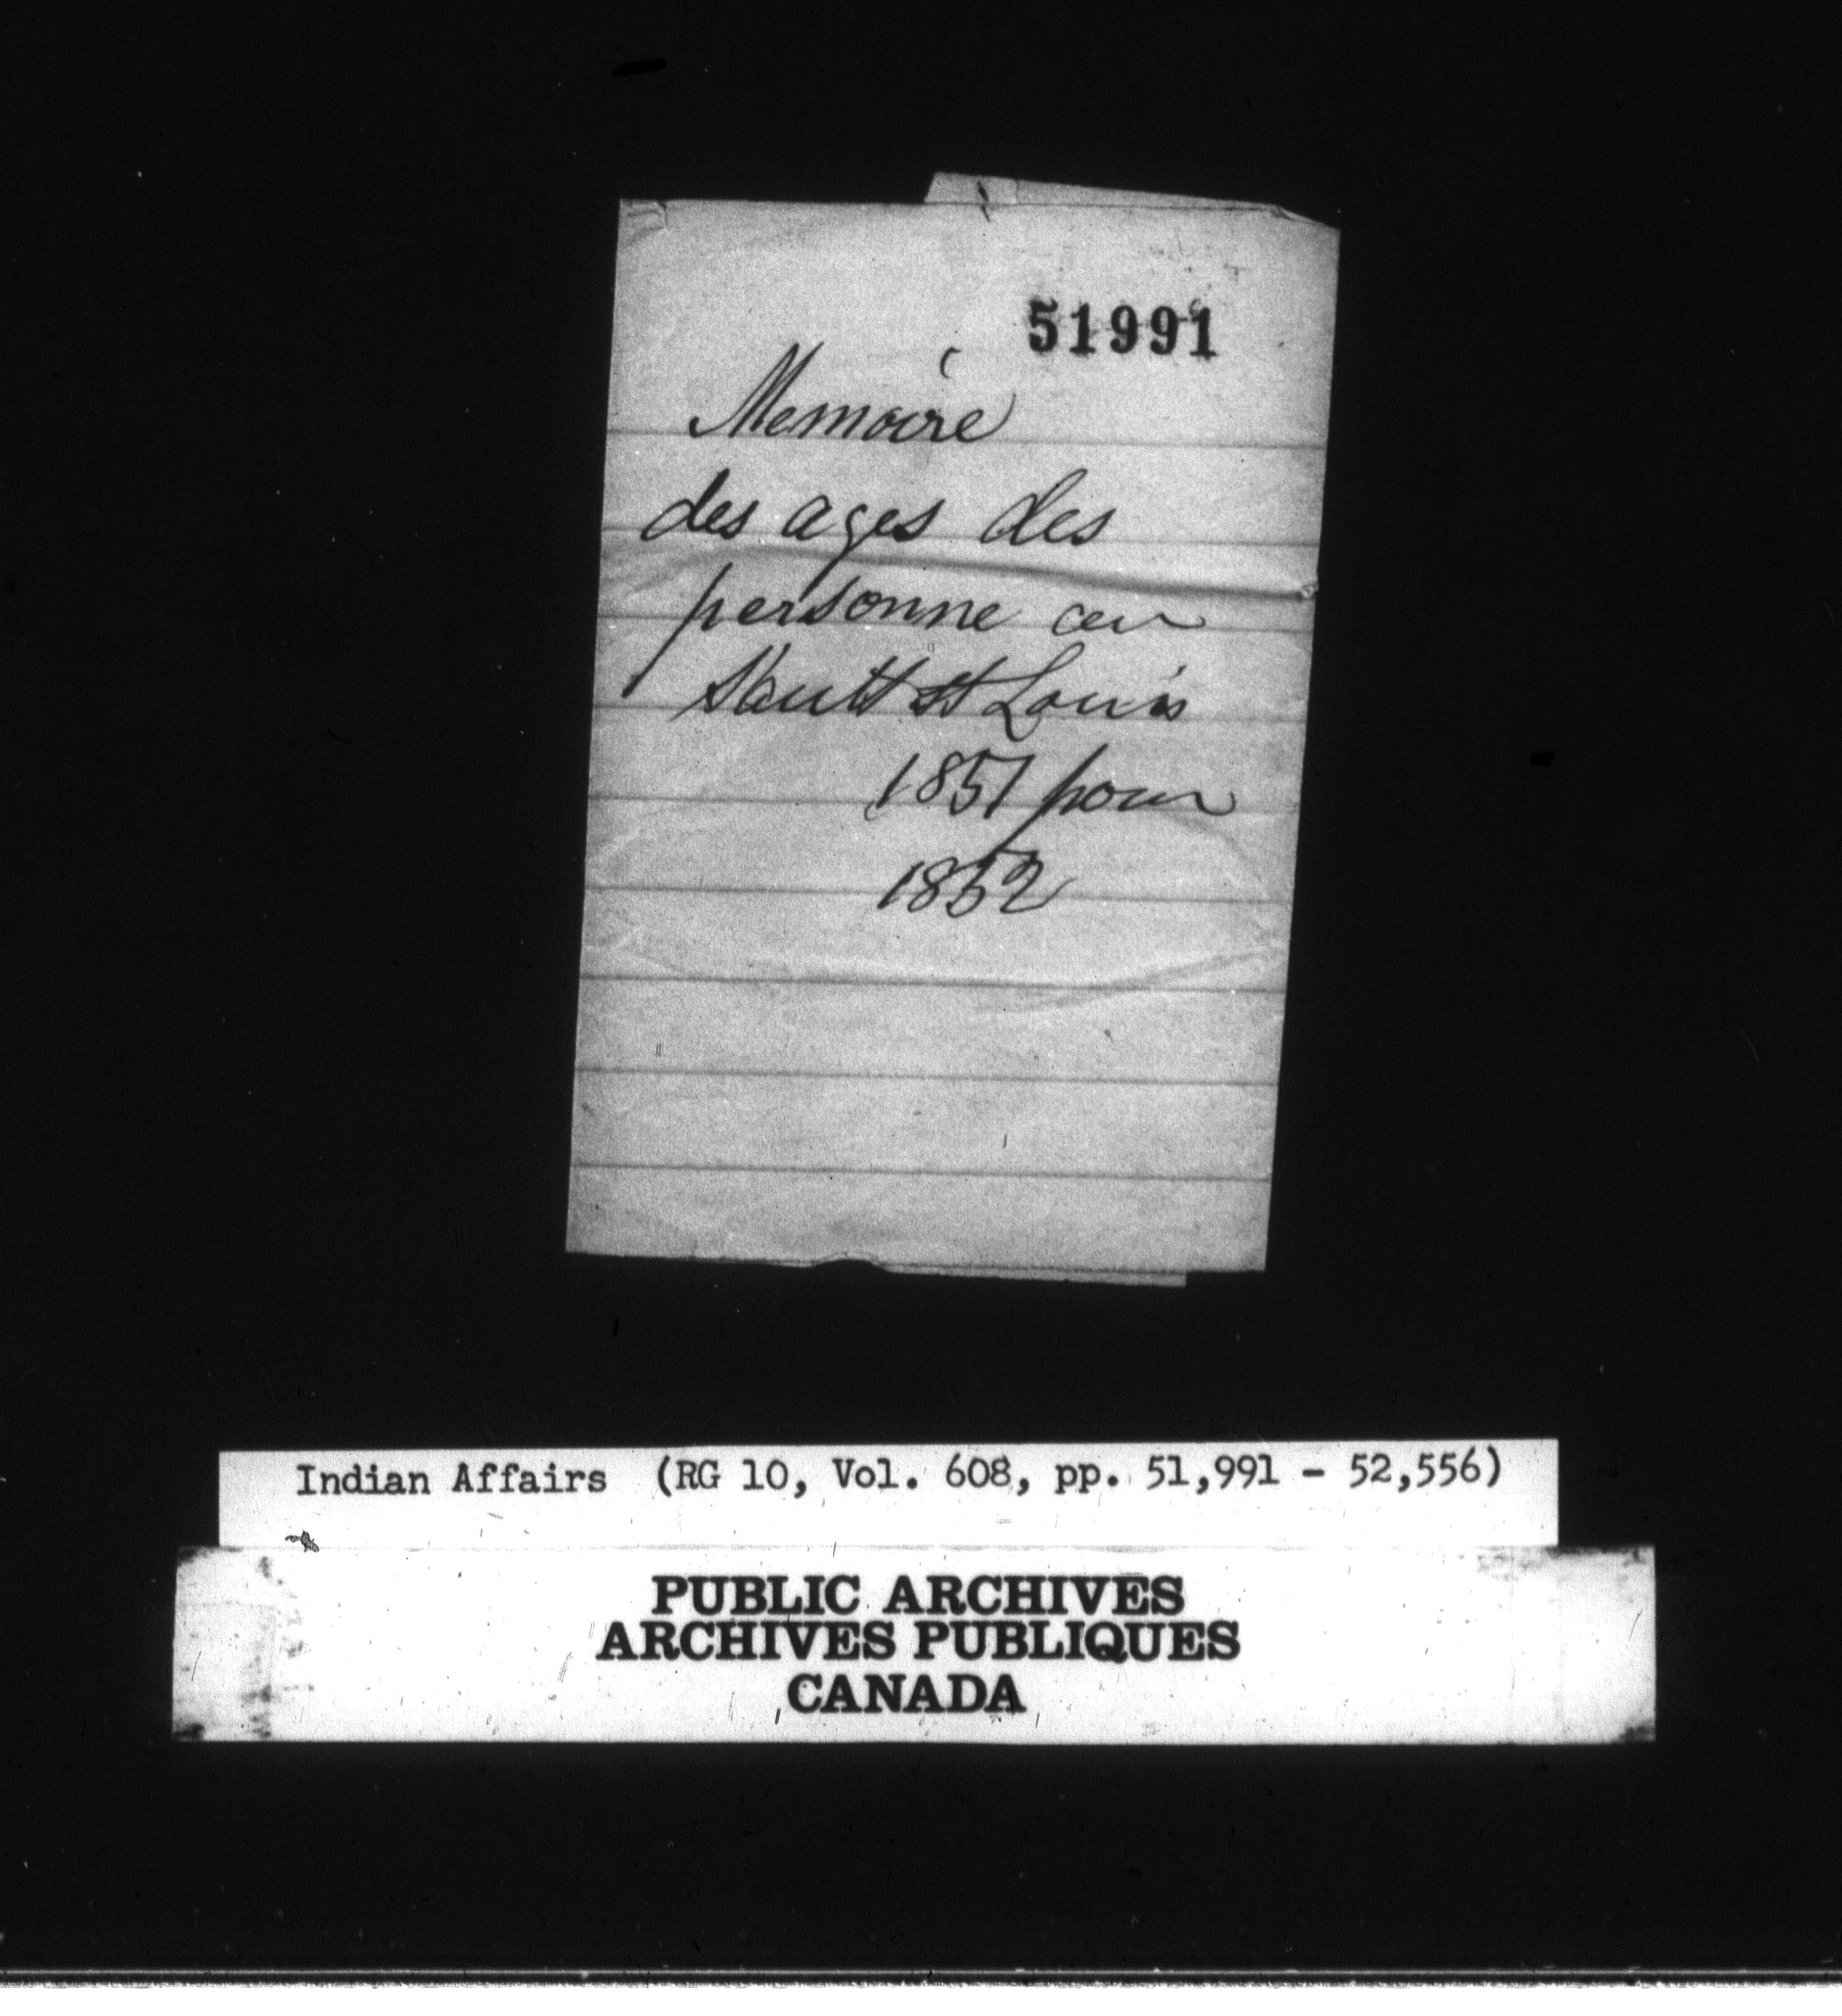 51991
Memoire
des ages des
personne au
Sault St Louis
1851 pour
1852
Indian Affairs (RG 10, Vol. 608, pp. 51,991 - 52,556)
PUBLIC ARCHIVES
ARCHIVES PUBLIQUES
CANADA